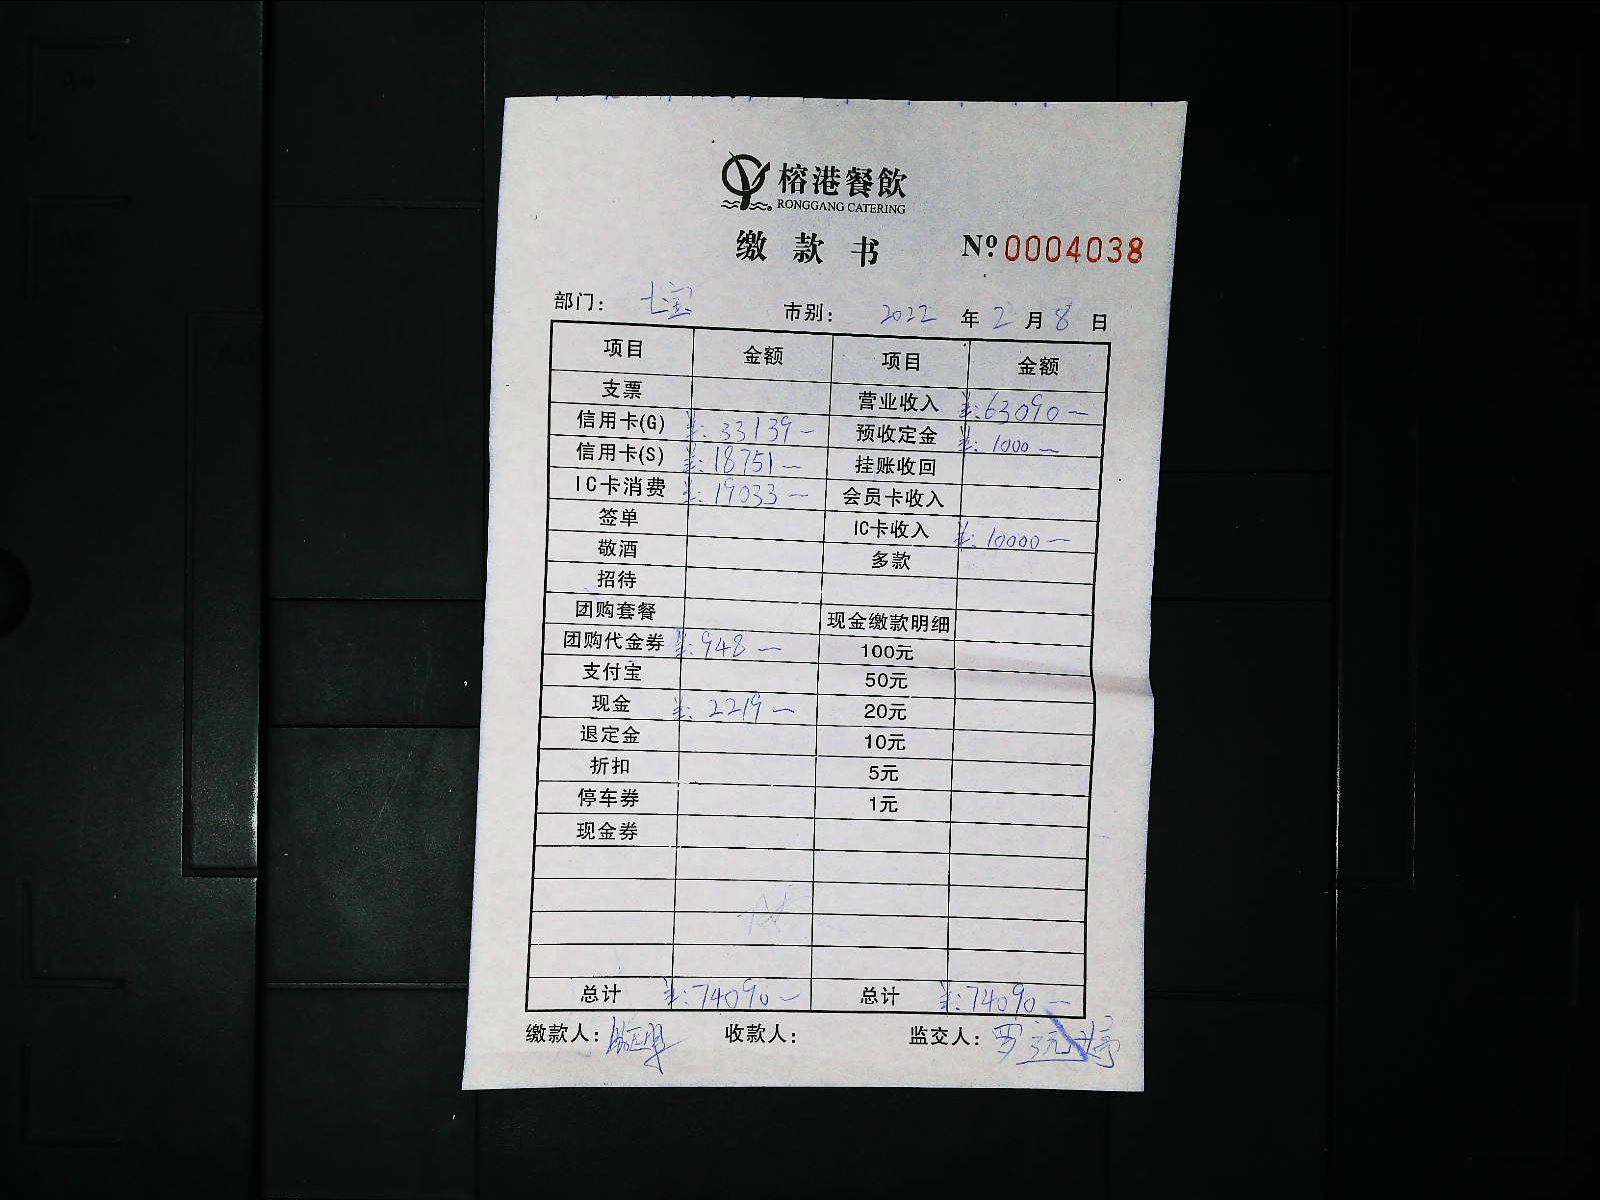 榕港餐飲
RONGGANG CATERING
缴款书 № 0004038
部门: 七宝 市别: 2022 年 2 月 8 日
项目 金额 项目 金额
支票 营业收入 ¥:63090—
信用卡(G) ¥:33139— 预收定金 ¥:1000—
信用卡(S) ¥:18751— 挂账收回
IC卡消费 ¥:19033— 会员卡收入
签单 IC卡收入 ¥:10000—
敬酒 多款
招待
团购套餐 现金缴款明细
团购代金券 ¥:948— 100元
支付宝 50元
现金 ¥:2219— 20元
退定金 10元
折扣 5元
停车券 1元
现金券
总计 ¥:74090— 总计 ¥:74090—
缴款人: 收款人: 监交人: 罗